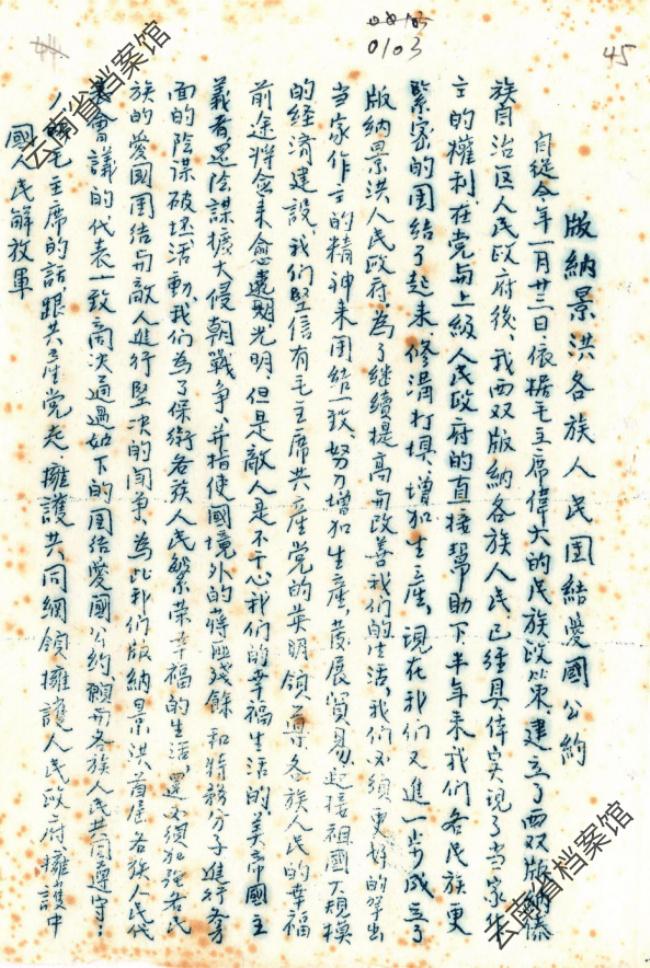 0103
45
版納景洪各族人民团結愛國公約
自從今年一月廿三日依据毛主席偉大的民族政策、建立了西双版納傣
族自治区人民政府後、我西双版納各族人民已經具体实现了当家作
主的權利、在党与上級人民政府的直接幫助下半年来我们各民族更
緊密的团结了起来、修溝打埧、增加生産、現在我们又進一步成立了
版納景洪人民政府、为了继續提高与改善我们的生活、我们必須更好的拿出
当家作主的精神来团结一致、努力增加生産、發展貿易、迎接祖國大規模
的経済建設、我们堅信有毛主席共産党的英明領導各族人民的幸福
前途将愈来愈光明、但是敵人是不干心我们的幸福生活的、美帝國主
義者還陰謀擴大侵朝戰争、并指使國境外的蒋匪残餘和特務分子進行各方
面的陰谋破坏活動、我们為了保衛各族人民繁荣幸福的生活、還必須加強各民
族的愛國团結与敵人進行堅决的闘争、為此我们版納景洪首届各族人民代
表會議的代表一致商决通過如下的团结愛國公約、願与各族人民共同遵守：
毛主席的話跟共産党走、擁護共同綱領、擁護人民政府、擁護中
國人民解放軍
云南省档案馆
云南省档案馆